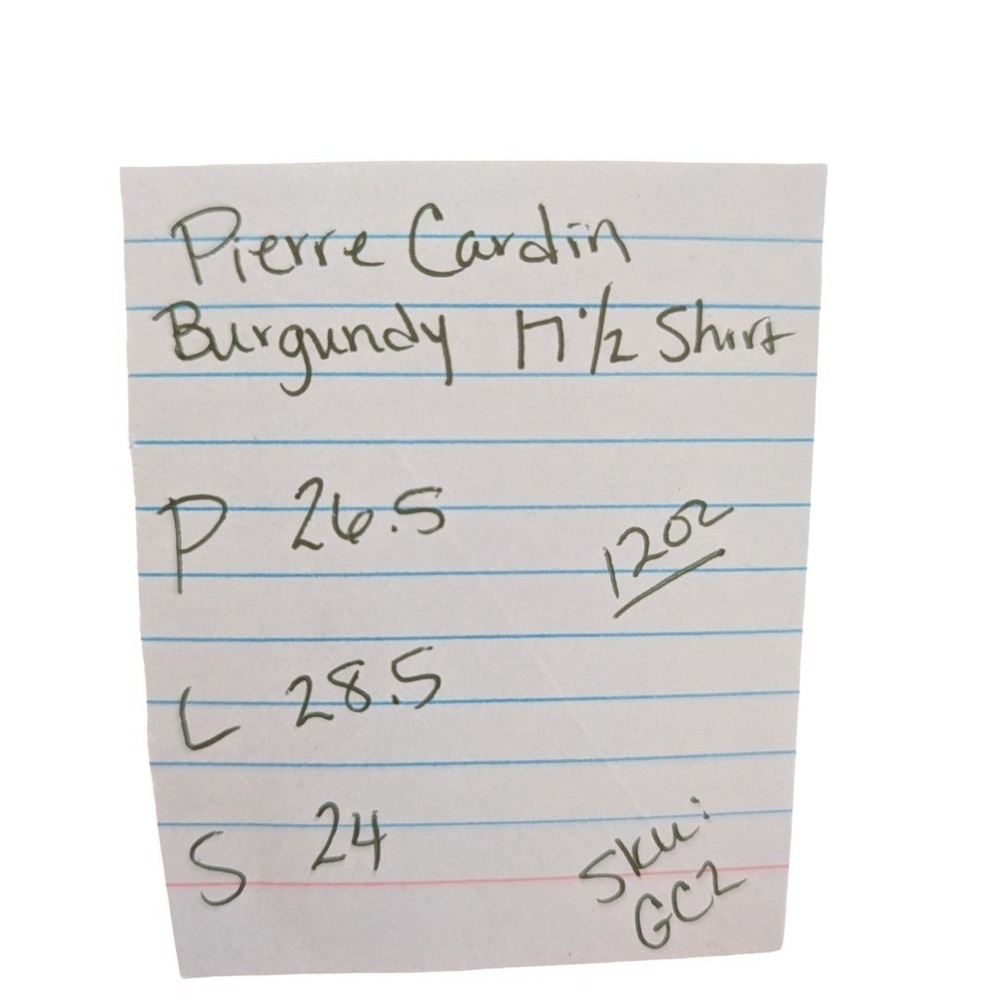 Pierre Cardin
Burgundy 17 1/2 Shirt
P 26.5
12oz
L 28.5
S 24
Sku:
GC2